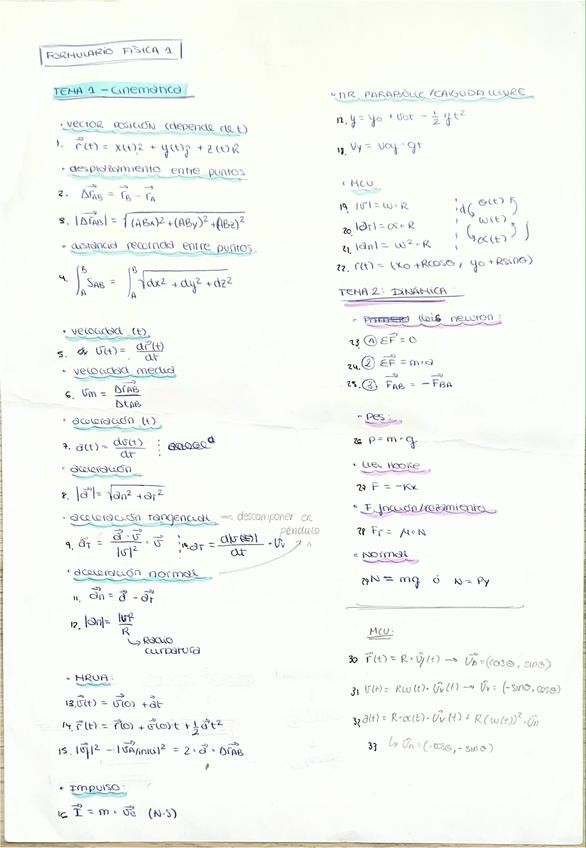 FORMULARIO FÍSICA 1
TEMA 1 - Cinemática
· VECTOR POSICIÓN (depende de t)
1. r⃗(t) = x(t)î + y(t)ĵ + z(t)k
· desplazamiento entre puntos
2. Δr⃗AB = r⃗B - r⃗A
3. |Δr⃗AB| = √(ABx)² + (ABy)² + (ABz)²
· distancia recorrida entre puntos
4. ∫_A^B SAB = ∫_A^B √dx² + dy² + dz²
· velocidad (t)
5. v⃗(t) = dr⃗(t)/dt
· velocidad media
6. v⃗m = Δr⃗AB/ΔtAB
· aceleración (t)
7. a(t) = dv(t)/dt
· aceleración
8. |a⃗| = √an² + aT²
· aceleración tangencial → descomponer en péndulo
9. a⃗T = a⃗·v⃗/|v|² · v⃗
10. aT = d|v(t)|/dt · ûv
· aceleración normal
11. a⃗n = a⃗ - a⃗T
12. |an| = |v|²/R
↳ Radio curvatura
· MRUA:
13. v⃗(t) = v⃗(0) + a⃗t
14. r⃗(t) = r⃗(0) + v⃗(0)t + ½a⃗t²
15. |v⃗f|² - |v⃗A/inici|² = 2·a⃗·Δr⃗AB
· Impulso:
16. I⃗ = m·v⃗ (N·s)
· MR. PARABÓLIC/CAIGUDA LLIURE
17. y = y0 + v0t - ½gt²
18. Vy = V0y - gt
· MCU
19. |v| = ω·R
20. |aT| = α·R
21. |an| = ω²·R
d( θ(t) ω(t) α(t) )∫
22. r(t) = (x0 + Rcosθ, y0 + Rsinθ)
TEMA 2: DINÁMICA:
· lleis newton:
23 ① ΣF⃗ = 0
24. ② ΣF⃗ = m·a
25. ③ F⃗AB = -F⃗BA
· Pes:
26 P = m·g
· Llei HOOKE
27 F = -Kx
· Fricción/rozamiento
28 Fr = μ·N
· Normal
29 N = mg ó N = Py
MCU:
30 r⃗(t) = R·ûr(t) → ûr = (cosθ, sinθ)
31 v(t) = Rω(t)·ûv(t) → ûv = (-sinθ, cosθ)
32 a(t) = R·α(t)·ûv(t) + R(ω(t))²·ûn
33 ↳ ûn = (-cosθ, -sinθ)